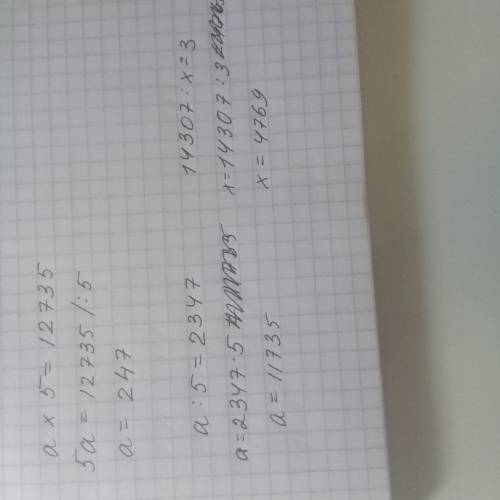 a x 5 = 12735
5a = 12735 /:5
a = 247
a : 5 = 2347
a = 2347 · 5
a = 11735
14307 : x = 3
x = 14307 : 3
x = 4769